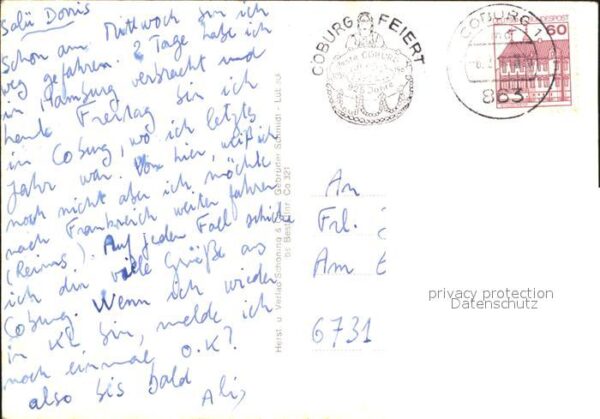 Salü Dorris
Schon am Mittwoch bin ich
weg gefahren. 2 Tage habe ich
in Hamburg verbracht und
heute Freitag bin ich
in Coburg, wo ich letztes
Jahr war. Von hier, weiß ich
noch nicht aber ich möchte
nach Frankreich weiter fahren
(Reims). Auf jeden Fall schicke
ich dir viele Grüße aus
Coburg. Wenn ich wieder
in KL bin, melde ich
noch einmal O.K?
also bis bald
Ali
COBURG FEIERT
COBURG
925 Jahre
COBURG 1
863
DEUTSCHE BUNDESPOST
60
Gebrüder Schmidt
Herst. u. Verlag Schöning &
Bestell-Nr. Co 321
An
Frl.
Am
6731
privacy protection
Datenschutz